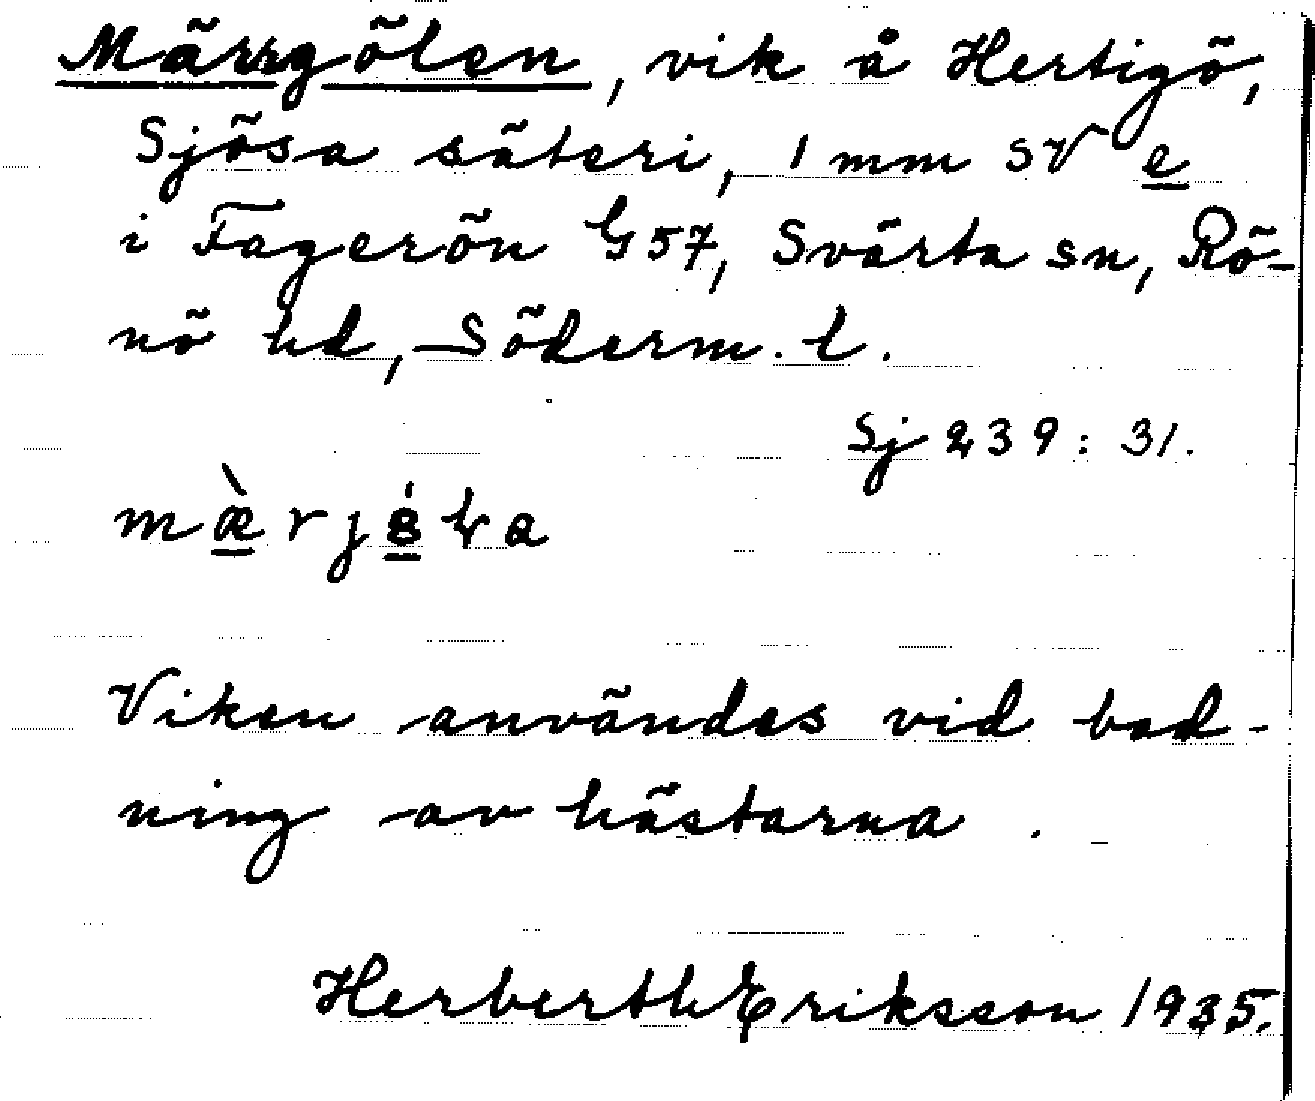 Märrgölen, vik å Hertigö,
Sjösa säteri, 1 mm SV e
i Fagerön G 57, Svärta sn, Rö-
nö hd, Söderm. l.
Sj 239 : 31.
Viken användes vid bad-
ning av hästarna .
Herberth Eriksson 1935.